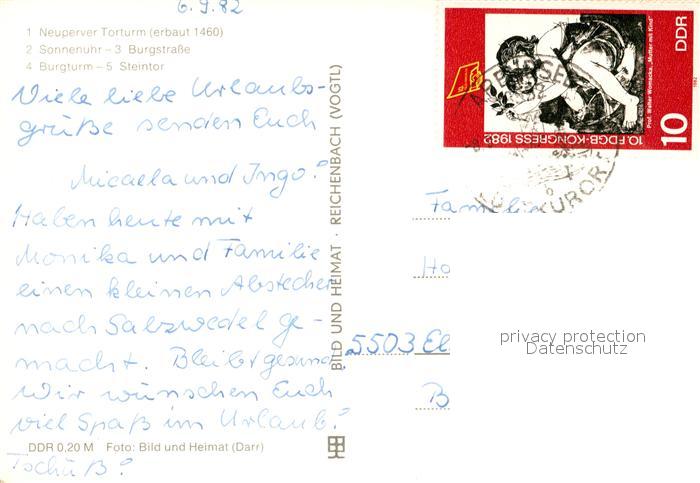 6.9.82
1 Neuperver Torturm (erbaut 1460)
2 Sonnenuhr – 3 Burgstraße
4 Burgturm – 5 Steintor
Viele liebe Urlaubs-
grüße senden Euch
Micaela und Ingo!
Haben heute mit
Monika und Familie
einen kleinen Abstecher
nach Salzwedel ge-
macht. Bleibt gesund
Wir wünschen Euch
viel Spaß im Urlaub!
DDR 0,20 M Foto: Bild und Heimat (Darr)
Tschüß!
BILD UND HEIMAT · REICHENBACH (VOGTL)
10 DDR
10. FDGB-KONGRESS 1982
Prof. Walter Womacka, „Mutter mit Kind"
1982
KUROR
Familie
Ho
5503 El
B
privacy protection
Datenschutz